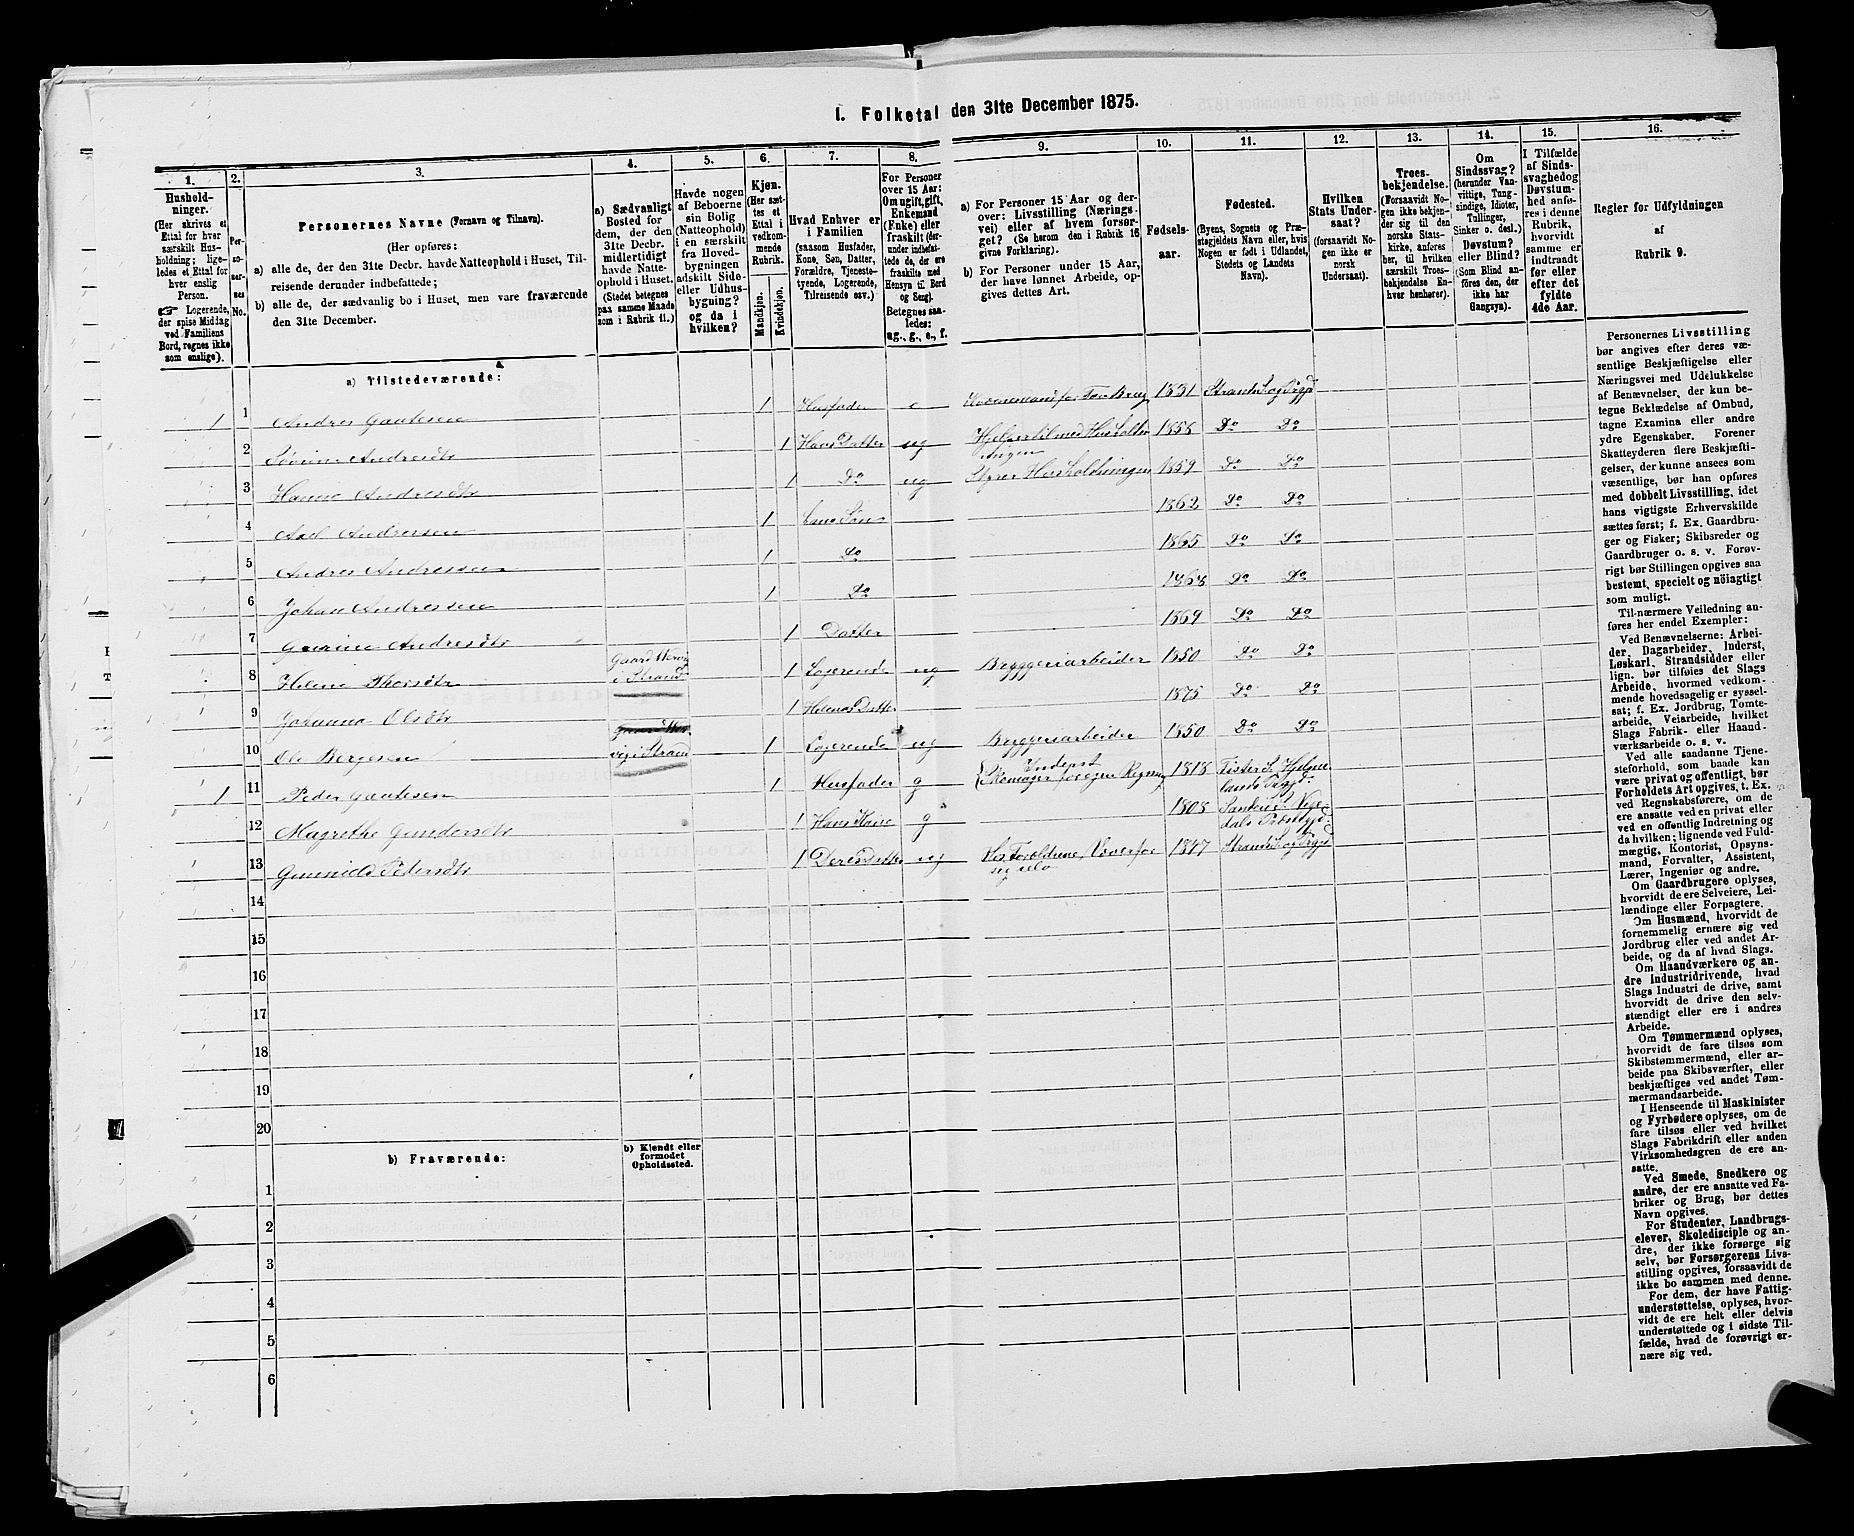 I. Folketal den 31te December 1875.
1. 2. 3. 4. 5. 6. 7. 8. 9. 10. 11. 12. 13. 14. 15. 16.
Hushold-
ninger.
(Her skrives et
Ettal for hver
særskilt Hus-
holdning; lige-
ledes et Ettal for
hver enslig
Person.
☞ Logerende,
der spise Middag
ved Familiens
Bord, regnes ikke
som enslige).
Per-
so-
ner-
nes
No.
Personernes Navne (Fornavn og Tilnavn).
(Her opføres:
a) alle de, der den 31te Decbr. havde Natteophold i Huset, Til-
reisende derunder indbefattede;
b) alle de, der sædvanlig bo i Huset, men vare fraværende
den 31te December.
a) Sædvanligt
Bosted for
dem, der den
31te Decbr.
midlertidigt
havde Natte-
ophold i Huset.
(Stedet betegnes
paa samme Maade
som i Rubrik 11.)
Havde nogen
af Beboerne
sin Bolig
(Natteophold)
i en særskilt
fra Hoved-
bygningen
adskilt Side-
eller Udhus-
bygning?
og da i
hvilken?
Kjøn.
(Her sæt-
tes et
Ettal i
vedkom-
mende
Rubrik.
Mandkjøn.
Kvindekjøn.
Hvad Enhver er
i Familien
(saasom Husfader,
Kone, Søn, Datter,
Forældre, Tjeneste-
tyende, Logerende,
Tilreisende osv.)
For Personer
over 15 Aar:
Om ugift, gift,
Enkemand
(Enke) eller
fraskilt (der-
under indbefat-
tede de, der ere
fraskilte med
Hensyn til Bord
og Seng).
Betegnes saa-
ledes:
ug., g., e., f.
a) For Personer 15 Aar og der-
over: Livsstilling (Nærings-
vei) eller af hvem forsør-
get? (Se herom den i Rubrik 16
givne Forklaring).
b) For Personer under 15 Aar,
der have lønnet Arbeide, op-
gives dettes Art.
Fødsels-
aar.
Fødested.
(Byens, Sognets og Præ-
stegjeldets Navn eller, hvis
Nogen er født i Udlandet,
Stedets og Landets
Navn).
Hvilken
Stats Under-
saat?
(forsaavidt No-
gen ikke er
norsk
Undersaat).
Troes-
bekjendelse.
(Forsaavidt No-
gen ikke bekjen-
der sig til den
norske Stats-
kirke, anføres
her, til hvilken
særskilt Troes-
bekjendelse En-
hver henhører).
Om
Sindssvag?
(herunder Van-
vittige, Tung-
sindige, Idioter,
Tullinger,
Sinker o. desl.)
Døvstum?
eller Blind?
(Som Blind an-
føres den, der
ikke har
Gangsyn).
I Tilfælde
af Sinds-
svaghed og
Døvstum-
hed anfø-
res i denne
Rubrik,
hvorvidt
samme er
indtraadt
før eller
efter det
fyldte
4de Aar.
Regler for Udfyldningen
af
Rubrik 9.
a) Tilstedeværende:
1 1 Andres Gautesen 1 Husfader e 1831 Strands S. og Prgj
2 Søvine Andresdtr 1 Hans Datter ug Hjelper til med Husholdn 1858 Do Do
3 Hanne Andresdtr 1 Do ug Styrer Husholdningen 1859 Do Do
4 Axel Andresen 1 hans Søn 1862 Do Do
5 Andres Andresen 1 Do 1865 Do Do
6 Johan Andresen 1 Do 1868 Do Do
7 Gurine Andresdtr 1 Datter 1869 Do Do
8 Helene Thorsdtr 1 Logerende ug Byggeriarbeider 1850 Do Do
i Strand
9 Johanne Olsdtr 1 Helenes Datter 1875 Do Do
10 Ole Bergesen i Strand 1 Logerende ug Byggeriarbeider 1850 Do Do
1 11 Peder Gautesen 1 Husfader g Inderst Skomager for egen Regning 1818 Fister S. Hjelme-
lands Prgj.
12 Magrethe Gundersdtr 1 Hans Kone g 1808 Sandeid S. Vige-
dals Præstgjd
13 Gunnild Pedersdtr 1 Deres Datter ug Hos Forældrene, Væver for 1847 Strands S. og Prgjd
sig selv
14
15
16
17
18
19
20
b) Fraværende:
b) Kjendt eller
formodet
Opholdssted.
1
2
3
4
5
6
Personernes Livsstilling
bør angives efter deres væ-
sentlige Beskjæftigelse eller
Næringsvei med Udelukkelse
af Benævnelser, der kun be-
tegne Beklædelse af Ombud,
tagne Examina eller andre
ydre Egenskaber. Forener
Skatteyderen flere Beskjæfti-
gelser, der kunne ansees som
væsentlige, bør han opføres
med dobbelt Livsstilling, idet
hans vigtigste Erhvervskilde
sættes først; f. Ex. Gaardbru-
ger og Fisker; Skibsreder og
Gaardbruger o. s. v. Forøv-
rigt bør Stillingen opgives saa
bestemt, specielt og nöiagtigt
som muligt.
Til nærmere Veiledning an-
føres her endel Exempler:
Ved Benævnelserne: Arbei-
der, Dagarbeider, Inderst,
Løskarl, Strandsidder eller
lign. bør tilføies det Slags
Arbeide, hvormed vedkom-
mende hovedsagelig er syssel-
sat; f. Ex. Jordbrug, Tomte-
arbeide, Veiarbeide, hvilket
Slags Fabrik- eller Haand-
værksarbeide o. s. v.
Ved alle saadanne Tjene-
steforhold, som baade kan
være privat og offentligt, bør
Forholdets Art opgives, t. Ex.
ved Regnskabsførere, om de
ere ansatte ved en privat eller
ved en offentlig Indretning og
da hvilken; lignende ved Fuld-
mægtig, Kontorist, Opsyns-
mand, Forvalter, Assistent,
Lærer, Ingeniør og andre.
Om Gaardbrugere oplyses,
hvorvidt de ere Selveiere, Lei-
lændinge eller Forpagtere.
Om Husmænd, hvorvidt de
fornemmelig ernære sig ved
Jordbrug eller ved andet Ar-
beide, og da af hvad Slags.
Om Haandværkere og an-
dre Industridrivende, hvad
Slags Industri de drive, samt
hvorvidt de drive den selv-
stændigt eller ere i andres
Arbeide.
Om Tømmermænd oplyses,
hvorvidt de fare tilsøs som
Skibstømmermænd, eller ar-
beide paa Skibsværfter, eller
beskjæftiges ved andet Tøm-
mermandsarbeide.
I Henseende til Maskinister
og Fyrbødere oplyses, om de
fare tilsøs eller ved hvilket
Slags Fabrikdrift eller anden
Virksomhedsgren de ere an-
satte.
Ved Smede, Snedkere og
andre, der ere ansatte ved Fa-
briker og Brug, bør dettes
Navn opgives.
For Studenter, Landbrugs-
elever, Skoledisciple og an-
dre, der ikke forsørge sig
selv, bør Forsørgerens Livs-
stilling opgives, forsaavidt de
ikke bo sammen med denne.
For dem, der have Fattig-
understøttelse, oplyses, hvor-
vidt de ere helt eller delvis
understøttede og i sidste Til-
fælde, hvad de forøvrigt er-
nære sig ved.